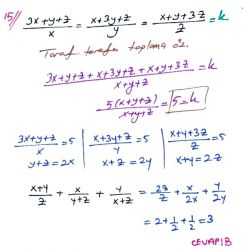 15) (3x+y+z)/x = (x+3y+z)/y = (x+y+3z)/z = k
Taraf tarafa toplama öz.
(3x+y+z+x+3y+z+x+y+3z)/(x+y+z) = k
5(x+y+z)/(x+y+z) = 5 = k
(3x+y+z)/x = 5 | (x+3y+z)/y = 5 | (x+y+3z)/z = 5
y+z = 2x | x+z = 2y | x+y = 2z
(x+y)/z + x/(y+z) + y/(x+z) = 2z/z + x/2x + y/2y
= 2+1/2+1/2 = 3
CEVAP: B